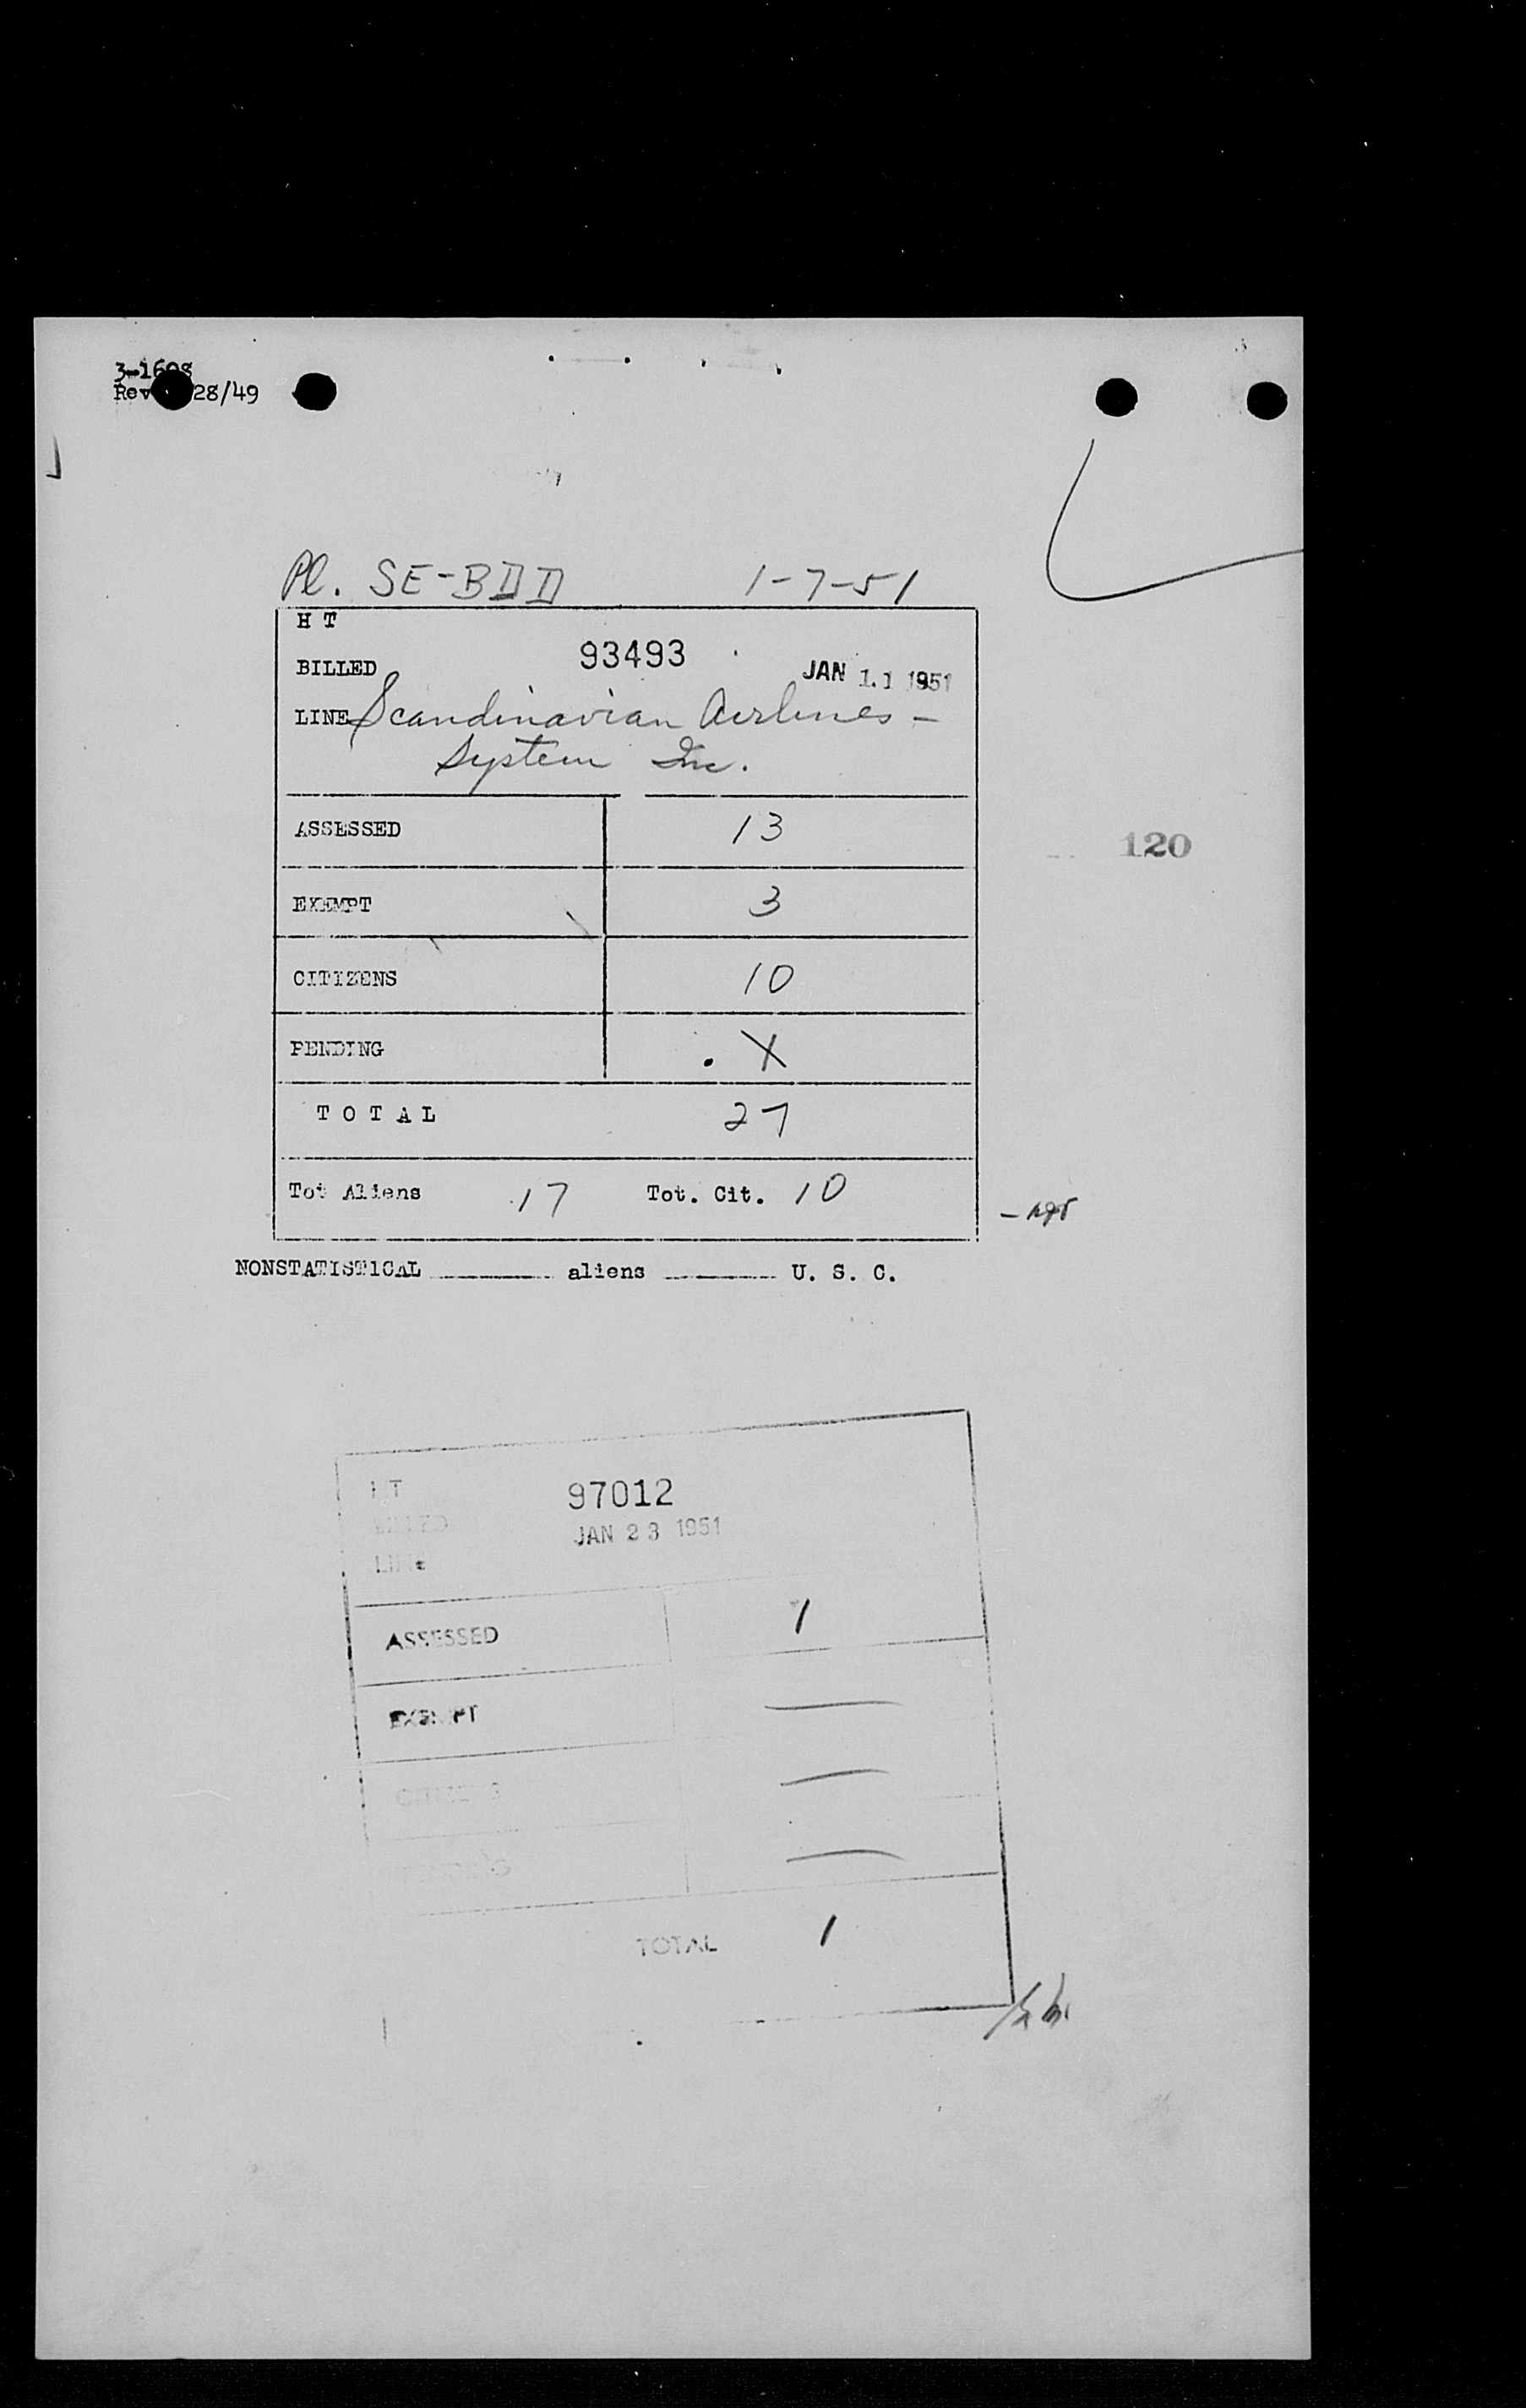 3-1608
Rev 28/49
Pl. SE-BDD 1-7-51
H T
93493
BILLED JAN 11 1951
LINE Scandinavian Airlines -
System Inc.
ASSESSED 13
120
EXEMPT 3
CITIZENS 10
PENDING X
TOTAL 27
Tot Aliens 17 Tot. Cit. 10
NONSTATISTICAL aliens U. S. C.
H T 97012
BILLED JAN 23 1951
LINE
ASSESSED 1
EXEMPT —
CITIZENS —
PENDING —
TOTAL 1